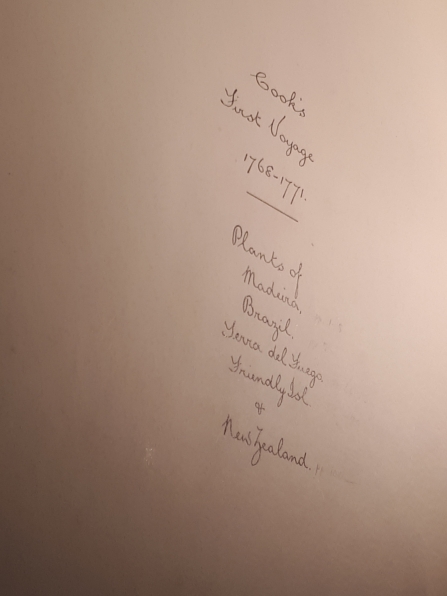 Cook's
First Voyage
1768-1771.
Plants of
Madeira.
Brazil.
Terra del Fuego
Friendly Isl
&
New Zealand.